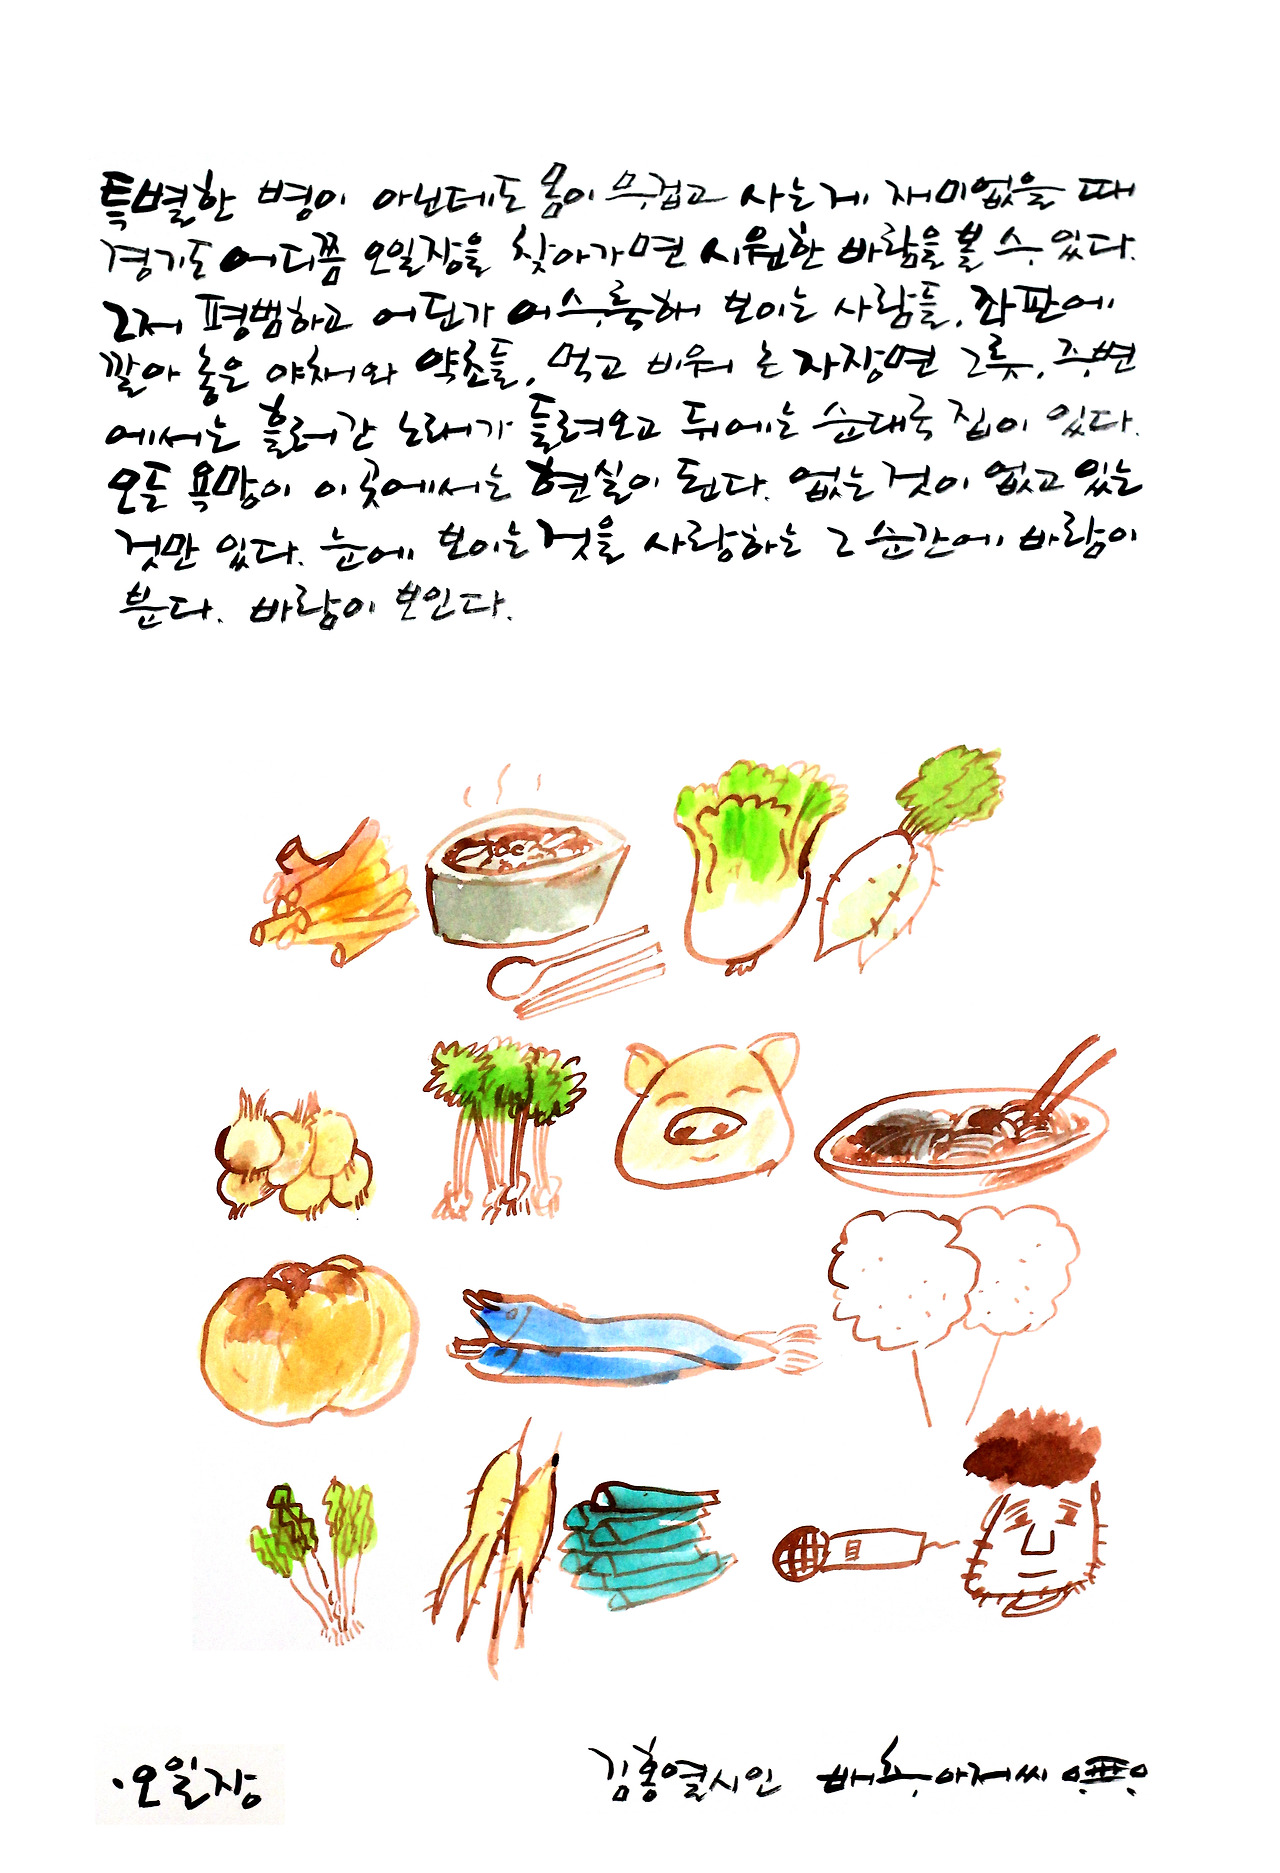 특별한 병이 아닌데도 몸이 무겁고 사는게 재미없을 때
경기도 어디쯤 오일장을 찾아가면 시원한 바람을 볼 수 있다.
그저 평범하고 어딘가 어수룩해 보이는 사람들, 좌판에
깔아 놓은 야채와 약초들, 먹고 비워 논 자장면 그릇, 주변
에서는 흘러간 노래가 들려오고 뒤에는 순대국 집이 있다.
모든 욕망이 이곳에서는 현실이 된다. 없는 것이 없고 있는
것만 있다. 눈에 보이는 것을 사랑하는 그 순간에 바람이
분다. 바람이 보인다.
·오일장
김홍열시인 아저씨